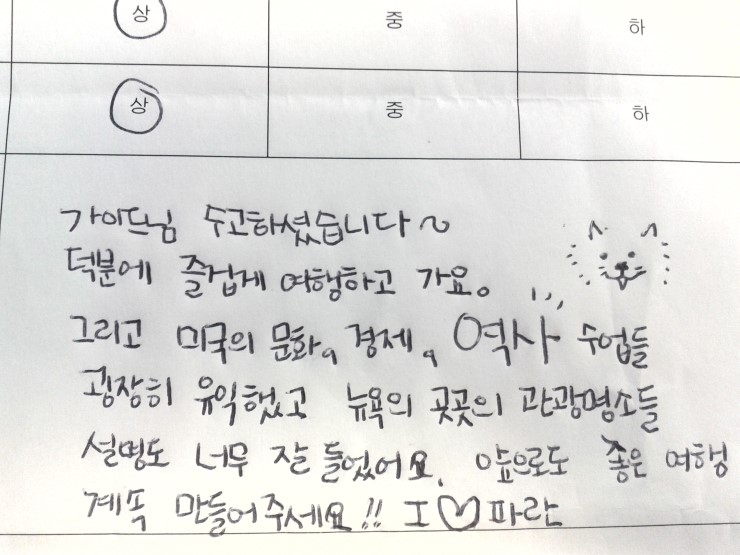 상 중 하
상 중 하
가이드님 수고하셨습니다~
덕분에 즐겁게 여행하고 가요.
그리고 미국의 문화, 경제, 역사 수업들
굉장히 유익했고 뉴욕의 곳곳의 관광명소들
설명도 너무 잘 들었어요. 앞으로도 좋은 여행
계속 만들어주세요!! I ♡ 파란